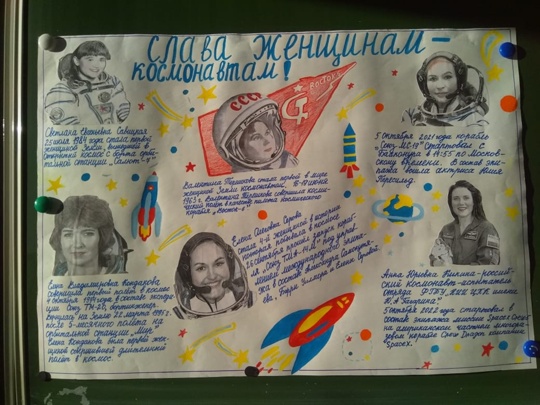 СЛАВА ЖЕНЩИНАМ-
КОСМОНАВТАМ!
Светлана Савицкая
25 июля 1984 года стала первой
женщиной Земли, вышедшей в
открытый космос с борта орби-
тальной станции „Салют-
СССР
ВОСТОК
Валентина Терешкова стала первой в мире
женщиной Земли космонавтом. 16-19 июня
1963 г. Валентина Терешкова совершила косми-
ческий полёт в качестве пилота космического
корабля „Восток-
5 октября 2021 года корабль
„Союз МС-19" стартовал с
Байконура в 11:55 по Москов-
скому времени. В состав эки-
пажа вошла актриса Юлия
Пересильд.
Елена Владимировна Кондакова
совершила первый полёт в космос
4 октября 1994 года в составе экспеди-
ции Союз ТМ-20,
на Землю 22 марта 1995 г.
после 5-месячного полёта на
орбитальной станции „Мир".
Елена Кондакова была первой жен-
щиной совершившей длительный
полёт в космос.
Елена Олеговна Серова
стала 4-й женщиной в истории
которая побывала в космосе.
26 сентября прошёл запуск кораб-
ля „Союз ТМА-14М" под управ-
жа в составе Александра Самокутя-
ева, Барри Уилмора и Елены Серовой.
Анна Юрьевна Кикина - россий-
ский космонавт-испытатель
отряда ФГБУ „НИИ ЦПК имени
Ю. А. Гагарина".
5 октября 2022 года стартовала в
составе экипажа миссии SpaceX Crew-5
на американском частном многора-
зовом корабле Crew Dragon компании
SpaceX.